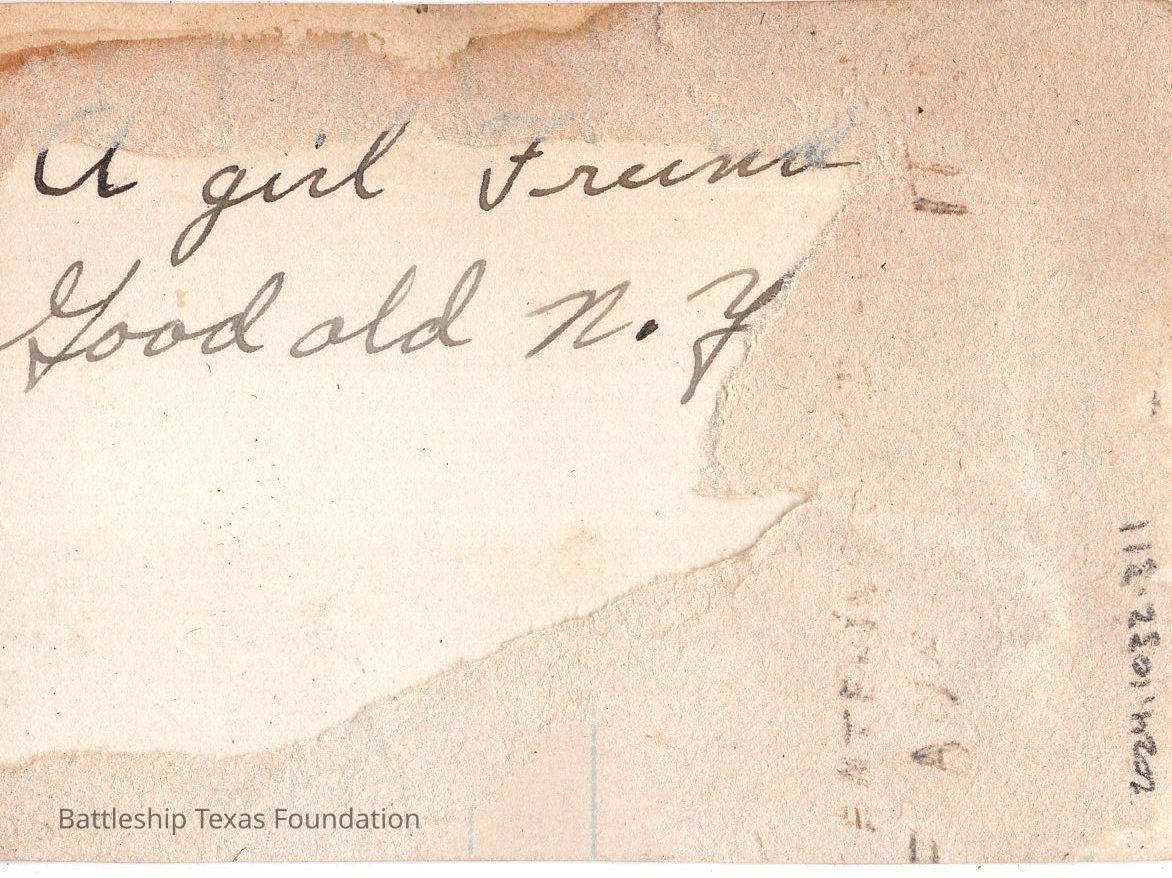 A girl Freind
Good old N. Y
2024.1023.211
Battleship Texas Foundation